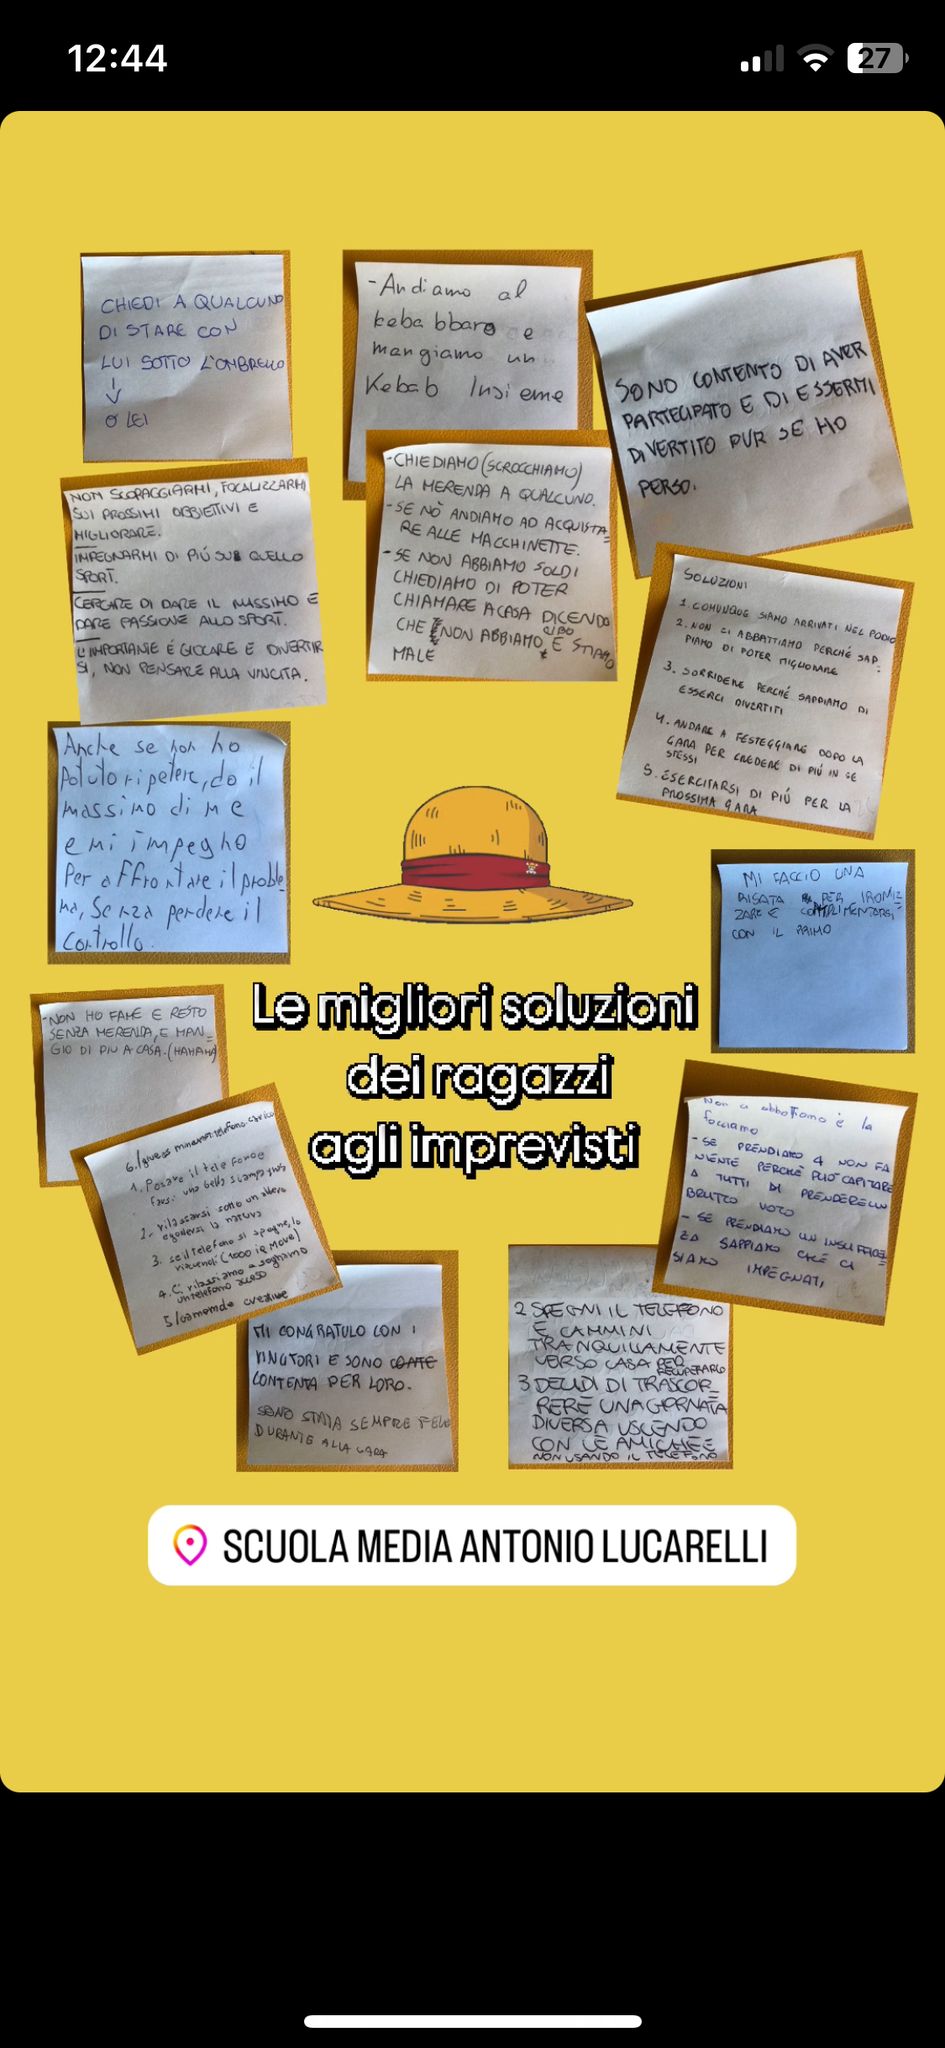 12:44
27
CHIEDI A QUALCUNO
DI STARE CON
LUI SOTTO L'OMBRELLO
O LEI
-Andiamo al
kebabbaro e
mangiamo un
Kebab Insieme
SONO CONTENTO DI AVER
PARTECIPATO E DI ESSERMI
DIVERTITO PUR SE HO
PERSO.
NON SCORAGGIARMI, FOCALIZZARMI
SUI PROSSIMI OBBIETTIVI E
MIGLIORARE.
IMPEGNARMI DI PIÚ SU QUELLO
SPORT.
CERCARE DI DARE IL MASSIMO E
DARE PASSIONE ALLO SPORT.
L'IMPORTANTE É GIOCARE E DIVERTIR
SI, NON PENSARE ALLA VINCITA.
-CHIEDIAMO (SCROCCHIAMO)
LA MERENDA A QUALCUNO.
-SE NÒ ANDIAMO AD ACQUISTA=
RE ALLE MACCHINETTE.
-SE NON ABBIAMO SOLDI
CHIEDIAMO DI POTER
CHIAMARE A CASA DICENDO
CHE NON ABBIAMO CIBO E STIAMO
MALE
SOLUZIONI
1. COMUNQUE SIAMO ARRIVATI NEL PODIO
2. NON CI ABBATTIAMO PERCHÉ SAP=
PIAMO DI POTER MIGLIORARE
3. SORRIDERE PERCHÉ SAPPIAMO DI
ESSERCI DIVERTITI
4. ANDARE A FESTEGGIARE DOPO LA
GARA PER CREDERE DI PIÚ IN SE
STESSI
5. ESERCITARSI DI PIÚ PER LA
PROSSIMA GARA
Anche se non ho
potuto ripetere, do il
massimo di me
e mi impegno
Per affrontare il proble
ma, Senza perdere il
controllo.
MI FACCIO UNA
RISATA PER IRONIZ=
ZARE E COMPLIMENTARSI
CON IL PRIMO
Le migliori soluzioni
dei ragazzi
agli imprevisti
-NON HO FAME E RESTO
SENZA MERENDA, E MAN=
GIO DI PIÚ A CASA.(HAHAHA)
6. telefono carico
1. Posare il telefono e
farsi una bella
2. rilassarsi sotto un albero
e godersi la natura
3. se il telefono si spegne, lo
riaccendi (1000 iq move)
4. Ci rilassiamo e sogniamo
un telefono acceso
5
Non ci abbattiamo e la
facciamo
-SE PRENDIAMO 4 NON FA
NIENTE PERCHÉ PUÒ CAPITARE
A TUTTI DI PRENDERE UN
BRUTTO VOTO
- SE PRENDIAMO UN INSUFFICIEN=
ZA SAPPIAMO CHE CI
SIAMO IMPEGNATI
MI CONGRATULO CON I
VINCITORI E SONO CONTE
CONTENTA PER LORO.
SONO STATA SEMPRE FELICE
DURANTE ALLA GARA
2 SPEGNI IL TELEFONO
E CAMMINI
TRANQUILLAMENTE
VERSO CASA PER
RECUPERARLO
3 DECIDI DI TRASCOR=
RERE UNA GIORNATA
DIVERSA USCENDO
CON LE AMICHE E
NON USANDO IL TELEFONO
SCUOLA MEDIA ANTONIO LUCARELLI